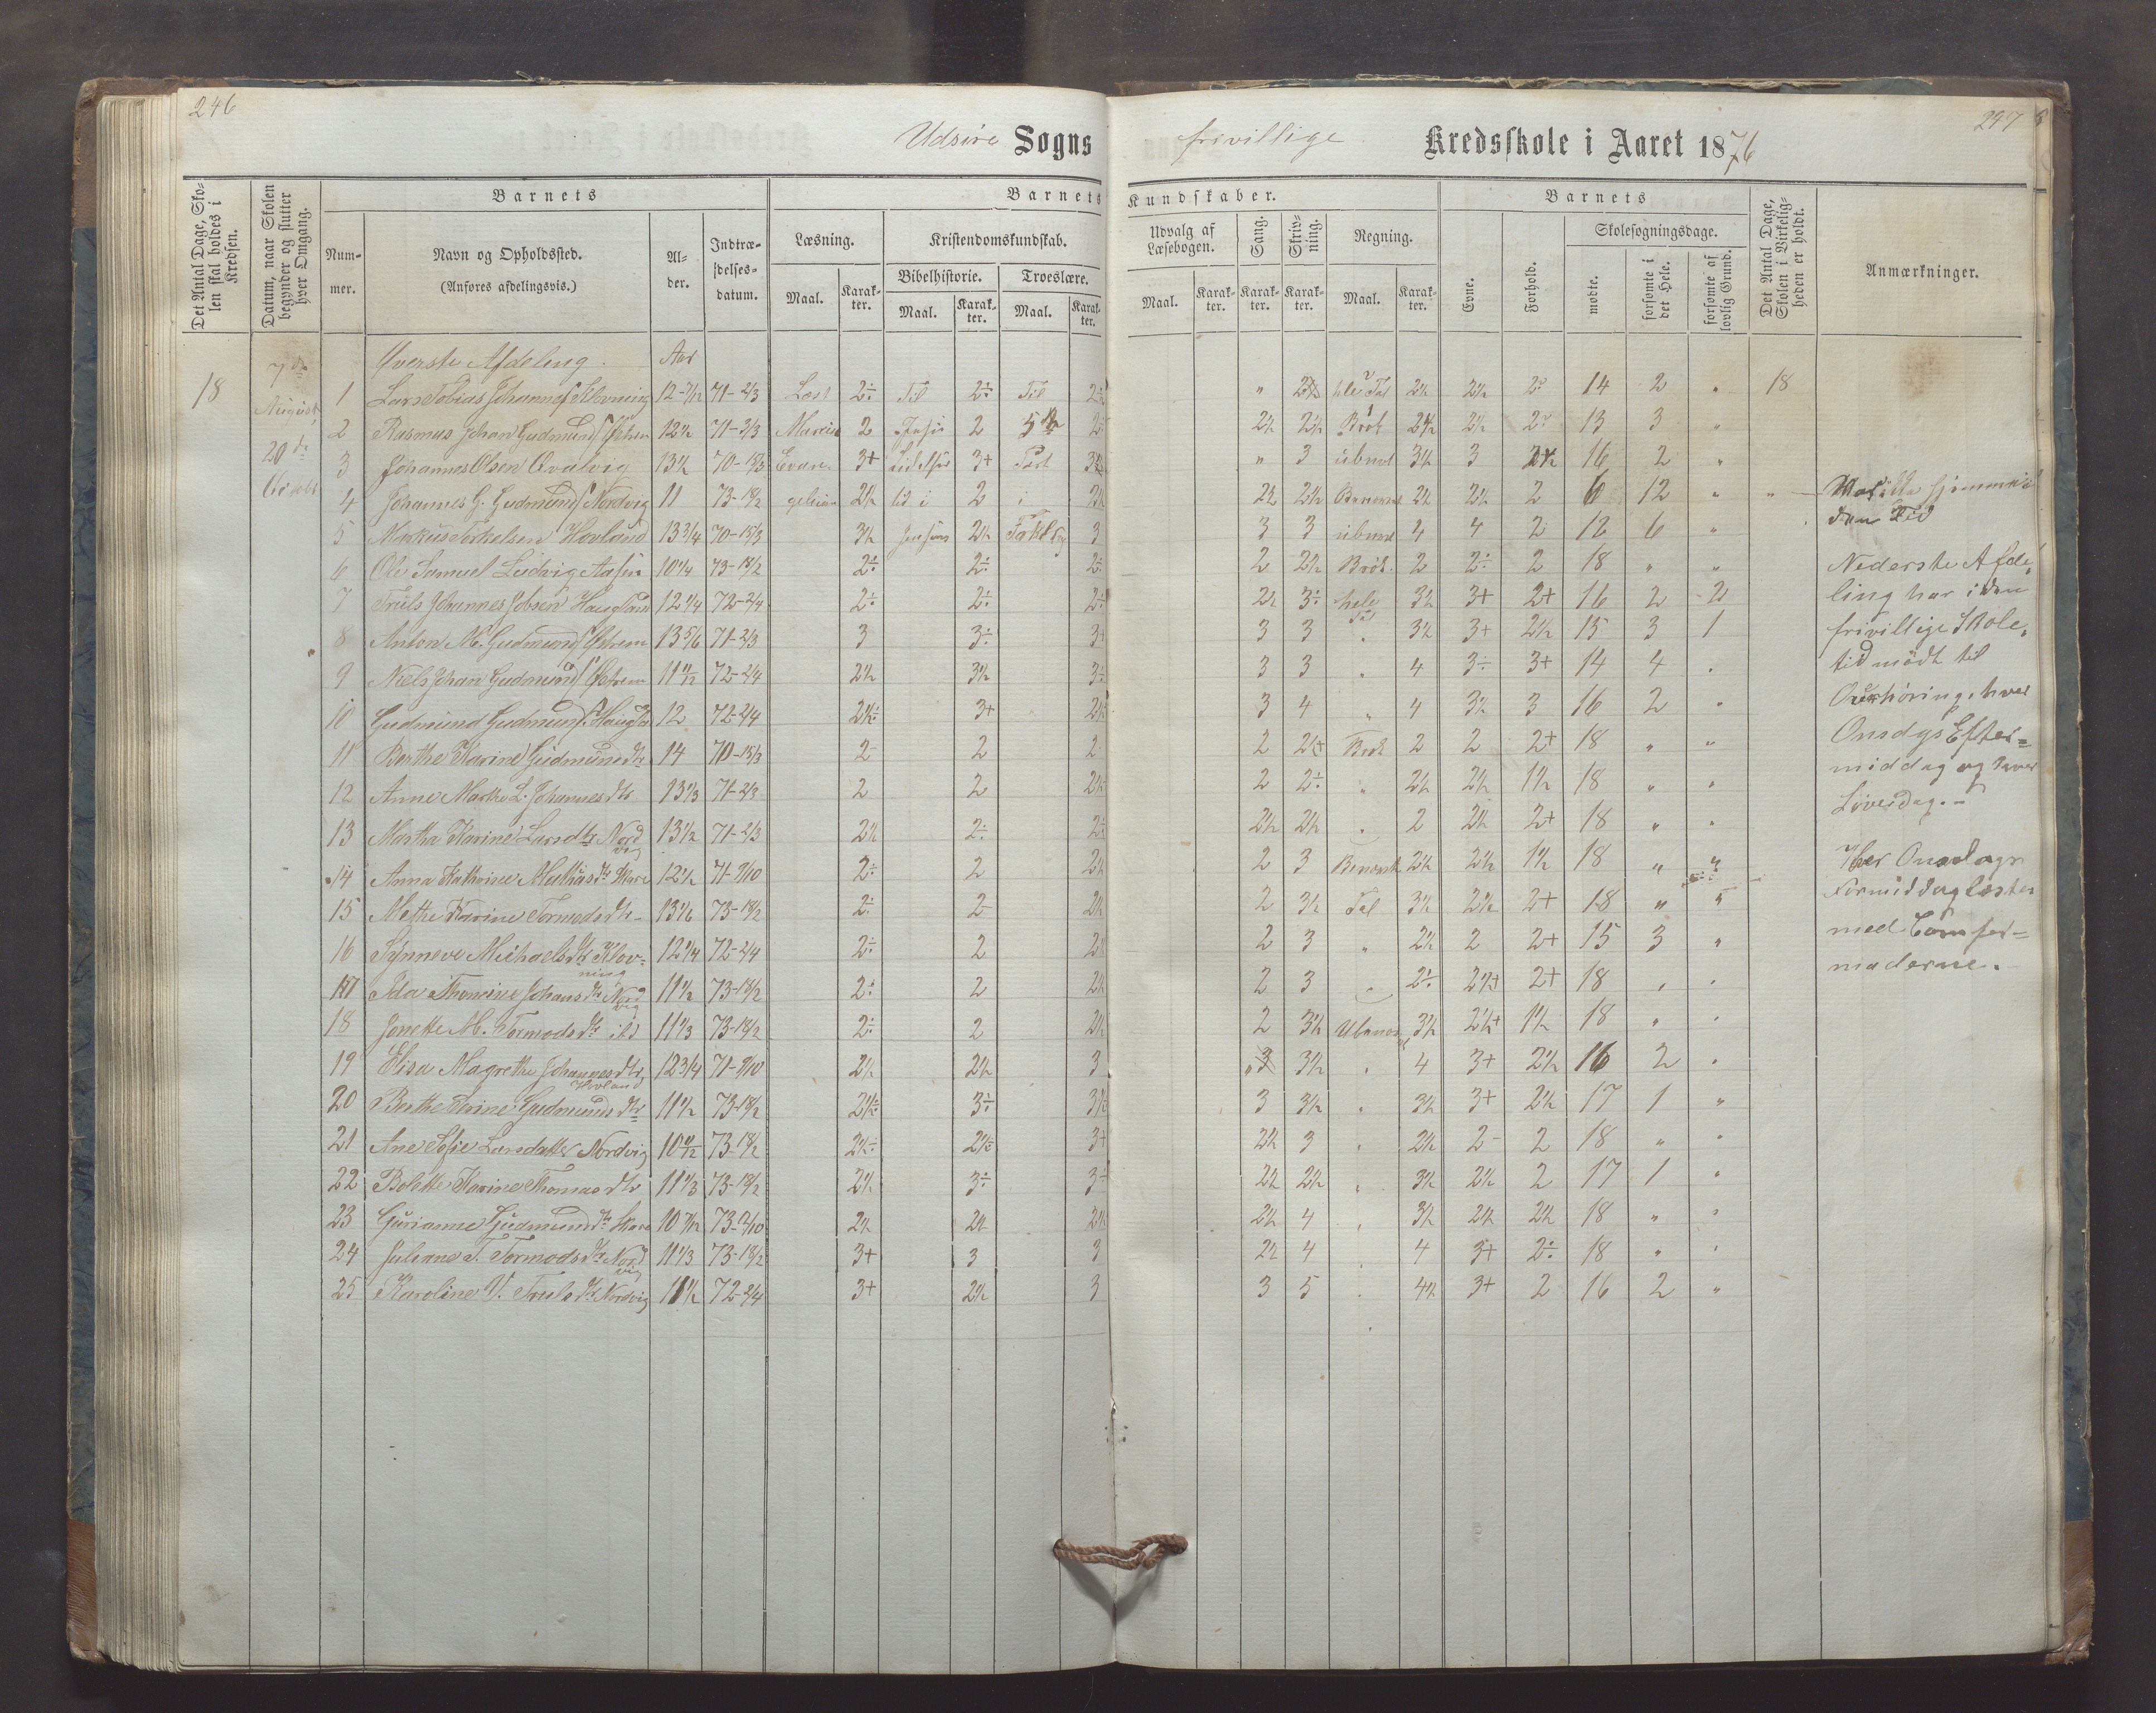 246
247
Udsire Sogns frivillige Kredsskole i Aaret 1876
Det Antal Dage, Skolen skal holdes i Kredsen.
Datum, naar Skolen begynder og slutter hver Omgang.
Barnets
Nummer.
Navn og Opholdssted.
(Anføres afdelingsvis.)
Alder.
Indtrædelsesdatum.
Barnets Kundskaber.
Læsning.
Maal.
Karakter.
Kristendomskundskab.
Bibelhistorie.
Maal.
Karakter.
Troeslære.
Maal.
Karakter.
Udvalg af Læsebogen.
Maal.
Karakter.
Sang.
Karakter.
Skrivning.
Karakter.
Regning.
Maal.
Karakter.
Barnets
Evne.
Forhold.
Skolesøgningsdage.
mødte.
forsømte i det Hele.
forsømte af lovlig Grund.
Det Antal Dage, Skolen i Virkeligheden er holdt.
Anmærkninger.
18
7de August
20de
Øverste Afdeling. Aar
1 Lars Tobias Johannes. Klovning 12-7/12 71-2/3 Læst 2÷ Til 2÷ Til 2÷ " hele Tal 2½ 2½ 14 2 " 18
2 Rasmus Johan Gudmunds. 12½ 71-2/3 2 2 2½ 2½ Brök 2½ 2½ 13 3 "
3 Johannes Olsen Qvalvig 13½ 3+ 3+ Part " 3 ubnvt 3½ 3 16 2 "
4 Johannes G. Gudmunds. Nordvig 11 73-18/2 2½ 2 i 2½ 2½ 2½ Benævnt 2½ 2½ 2 6 12 "
5 Markus Torkelsen Hovland 13¾ 70-15/3 3½ 2½ 3 3 3 ubnvt 4 4 2 12 6 "
6 Ole Samuel Ludvig Aasen 10¼ 73-18/2 2÷ 2÷ 2÷ 2 2½ Brök. 2 2÷ 2 18 " "
7 Truls Johannes Jobsen 12¼ 72-2/4 2÷ 2÷ 2÷ 2½ 3÷ hele Tal 3½ 3+ 2+ 16 2 2
8 Anton M. Gudmunds. 13 5/6 71-2/3 3 3÷ 3+ 3 3 " 3½ 3+ 2½ 15 3 1
9 Niels Johan Gudmunds. 11 11/12 72-2/4 2½ 3½ 3÷ 3 3 " 4 3÷ 3+ 14 4 "
10 Gudmund Gudmunds. 12 72-2/4 2½÷ 3+ 2½ 3 4 " 4 3½ 3 16 2 "
11 Berthe Karine Gudmundsdtr 14 70-15/3 2 2 2 2 2½+ Brök 2 2 2+ 18 " "
12 Anne Marthe L. Johannesdtr 13⅓ 71-2/3 2 2 2½ 2 2÷ " 2½ 2½ 1½ 18 " "
13 Martha Karine Larsdtr Nordvig 13½ 71-2/3 2½ 2÷ 2÷ 2½ 2½ " 2 2½ 2+ 18 " "
14 Anna Kathrine 12½ 71-9/10 2÷ 2 2½ 2 3 Benævnt 2½ 2½ 1½ 18 " "
15 Methe Karine Tormodsdtr 13 1/6 73-18/2 2÷ 2 2½ 2 3½ Tal 3½ 2½ 2+ 18 " "
16 Synneve Michaelsdtr Klovning 12¼ 72-2/4 2÷ 2 2½ 2 3 " 2½ 2 2+ 15 3 "
17 Johansdtr Nordvig 11½ 73-18/2 2÷ 2 2½ 2 3 " 2÷ 2½+ 2+ 18 " "
18 Jonette M. Tormodsdtr ibd 11⅓ 73-18/2 2÷ 2 2½ 2 3½ 3½ 2½+ 1½ 18 " "
19 Elisa Magrethe Johannesdtr Hovland 12¾ 71-9/10 2½ 2½ 3 3 3½ " 4 3+ 2½ 16 2 "
20 Berthe Serine Gudmundsdtr 11½ 73-18/2 2½÷ 3÷ 3½ 3 3½ " 3½ 3+ 2½ 17 1 "
21 Ane Sofie Larsdatter Nordvig 10 11/12 73-18/2 2½÷ 2½÷ 3+ 2½ 3 " 2½ 2- 2 18 " "
22 Bolette Karine Thomasdtr 11⅓ 73-18/2 2½ 3÷ 3÷ 2½ 2½ " 3½ 2½ 2 17 1 "
23 Gurianne Gudmundsdtr Skare 10 7/12 2½ 2½ 2½ 2½ 4 " 3½ 2½ 2½ 18 " "
24 Juliane T. Tormodsdtr Nordvig 11⅓ 73-18/2 3+ 3 3 2½ 4 4 3+ 2÷ 18 " "
25 Karoline V. Trulsdtr Nordvig 11½ 72-2/4 3+ 2½ 3 3 5 " 4½ 3+ 2 16 2 "
hjemme i
den Tid
Nederste Afde-
ling har i den
frivillige Skole-
tid mödt til
Overhöring, hver
Onsdgs Efter-
middag og hver
Löverdag.-
Hver Onsdags
Formiddag læstes
med Comfir-
manderne.